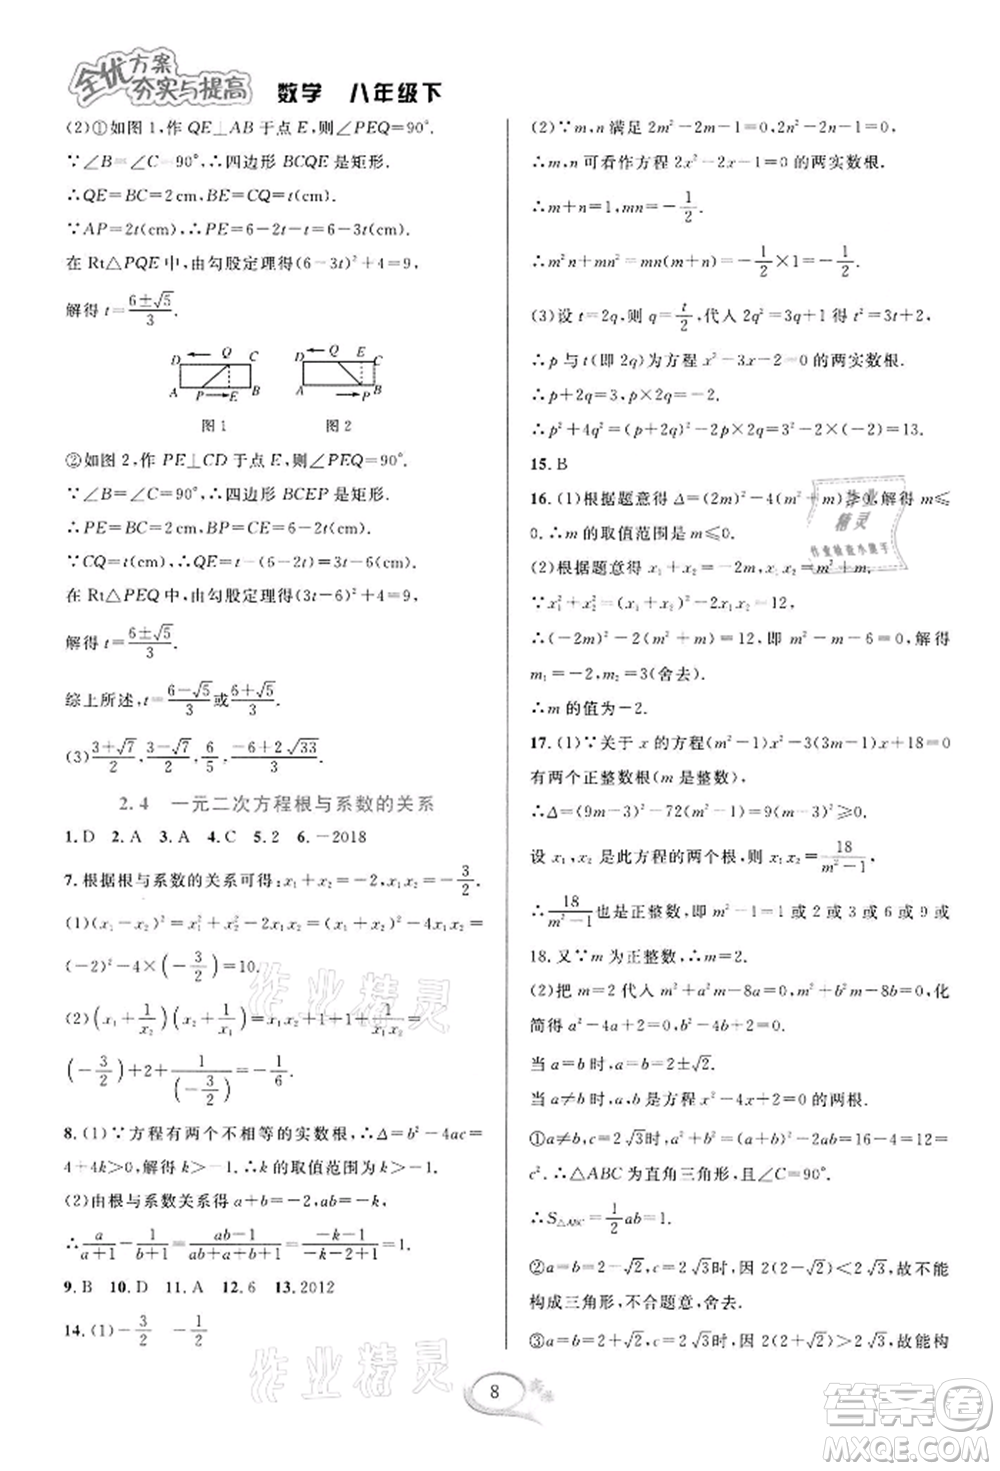 全优方案
夯实与提高 数学 八年级下
(2)①如图1,作QE⊥AB于点E,则∠PEQ=90°.
∵∠B=∠C=90°,∴四边形BCQE是矩形.
∴QE=BC=2cm,BE=CQ=t(cm).
∵AP=2t(cm),∴PE=6-2t-t=(6-3t)cm.
在Rt△PQE中,由勾股定理得(6-3t)²+4=9,
解得t=(6±√5)/3.
D Q C
A P E B
D Q E C
A P B
图1 图2
②如图2,作PE⊥CD于点E,则∠PEQ=90°.
∵∠B=∠C=90°,∴四边形BCEP是矩形.
∴PE=BC=2cm,BP=CE=6-2t(cm).
∵CQ=t(cm),∴QE=t-(6-2t)=(3t-6)cm.
在Rt△PEQ中,由勾股定理得(3t-6)²+4=9,
解得t=(6±√5)/3.
综上所述,t=(6-√5)/3或(6+√5)/3.
(3)(3+√7)/2,(3-√7)/2,6/5,(-6+2√33)/3.
2.4 一元二次方程根与系数的关系
1.D 2.A 3.A 4.C 5.2 6.-2018
7.根据根与系数的关系可得:x₁+x₂=-2,x₁x₂=-3/2.
(1)(x₁-x₂)²=x₁²+x₂²-2x₁x₂=(x₁+x₂)²-4x₁x₂=
(-2)²-4×(-3/2)=10.
(2)(x₁+1/x₂)(x₂+1/x₁)=x₁x₂+1+1+1/(x₁x₂)=
(-3/2)+2+1/(-3/2)=-1/6
8.(1)∵方程有两个不相等的实数根,∴Δ=b²-4ac=
4+4k>0,解得k>-1.∴k的取值范围为k>-1.
(2)由根与系数关系得a+b=-2,ab=-k,
∴a/(a+1)-1/(b+1)=(ab-1)/(ab+a+b+1)=(-k-1)/(-k-2+1)=1.
9.B 10.D 11.A 12.6 13.2012
14.(1)-3/2 -1/2
(2)∵m,n满足2m²-2m-1=0,2n²-2n-1=0,
∴m,n可看作方程2x²-2x-1=0的两实数根.
∴m+n=1,mn=-1/2.
∴m²n+mn²=mn(m+n)=-1/2×1=-1/2.
(3)设t=2q,则q=t/2,代入2q²=3q+1得t²=3t+2,
∴p与t(即2q)为方程x²-3x-2=0的两实数根.
∴p+2q=3,p·2q=-2.
∴p²+4q²=(p+2q)²-2p×2q=3²-2×(-2)=13.
15.B
16.(1)根据题意得Δ=(2m)²-4(m²+m)≥0,解得m≤
0.∴m的取值范围为m≤0.
(2)根据题意得x₁+x₂=-2m,x₁x₂=m²+m.
∵x₁²+x₂²=(x₁+x₂)²-2x₁x₂=12,
∴(-2m)²-2(m²+m)=12,即m²-m-6=0,解得
m₁=-2,m₂=3(舍去).
∴m的值为-2.
17.(1)∵关于x的方程(m²-1)x²-3(3m-1)x+18=0
有两个正整数根(m是整数).
∴Δ=(9m-3)²-72(m²-1)=9(m-3)²≥0.
设x₁,x₂是此方程的两个根,则x₁x₂=18/(m²-1).
∴18/(m²-1)也是正整数,即m²-1=1或2或3或6或9或
18.又∵m为正整数,∴m=2.
(2)把m=2代入m²+a²m-8a=0,m²+b²m-8b=0,化
简得a²-4a+2=0,b²-4b+2=0.
当a=b时,a=b=2±√2.
当a≠b时,a,b是方程x²-4x+2=0的两根.
①a≠b,c=2√3时,a²+b²=(a+b)²-2ab=16-4=12=
c².∴△ABC为直角三角形,且∠C=90°.
∴S△ABC=1/2ab=1.
②a=b=2-√2,c=2√3时,因2(2-√2)<2√3,故不能
构成三角形,不合题意,舍去.
③a=b=2+√2,c=2√3时,因2(2+√2)>2√3,故能构
8
作业精灵
作业精灵
作业精灵
答案卷
MXQE.COM